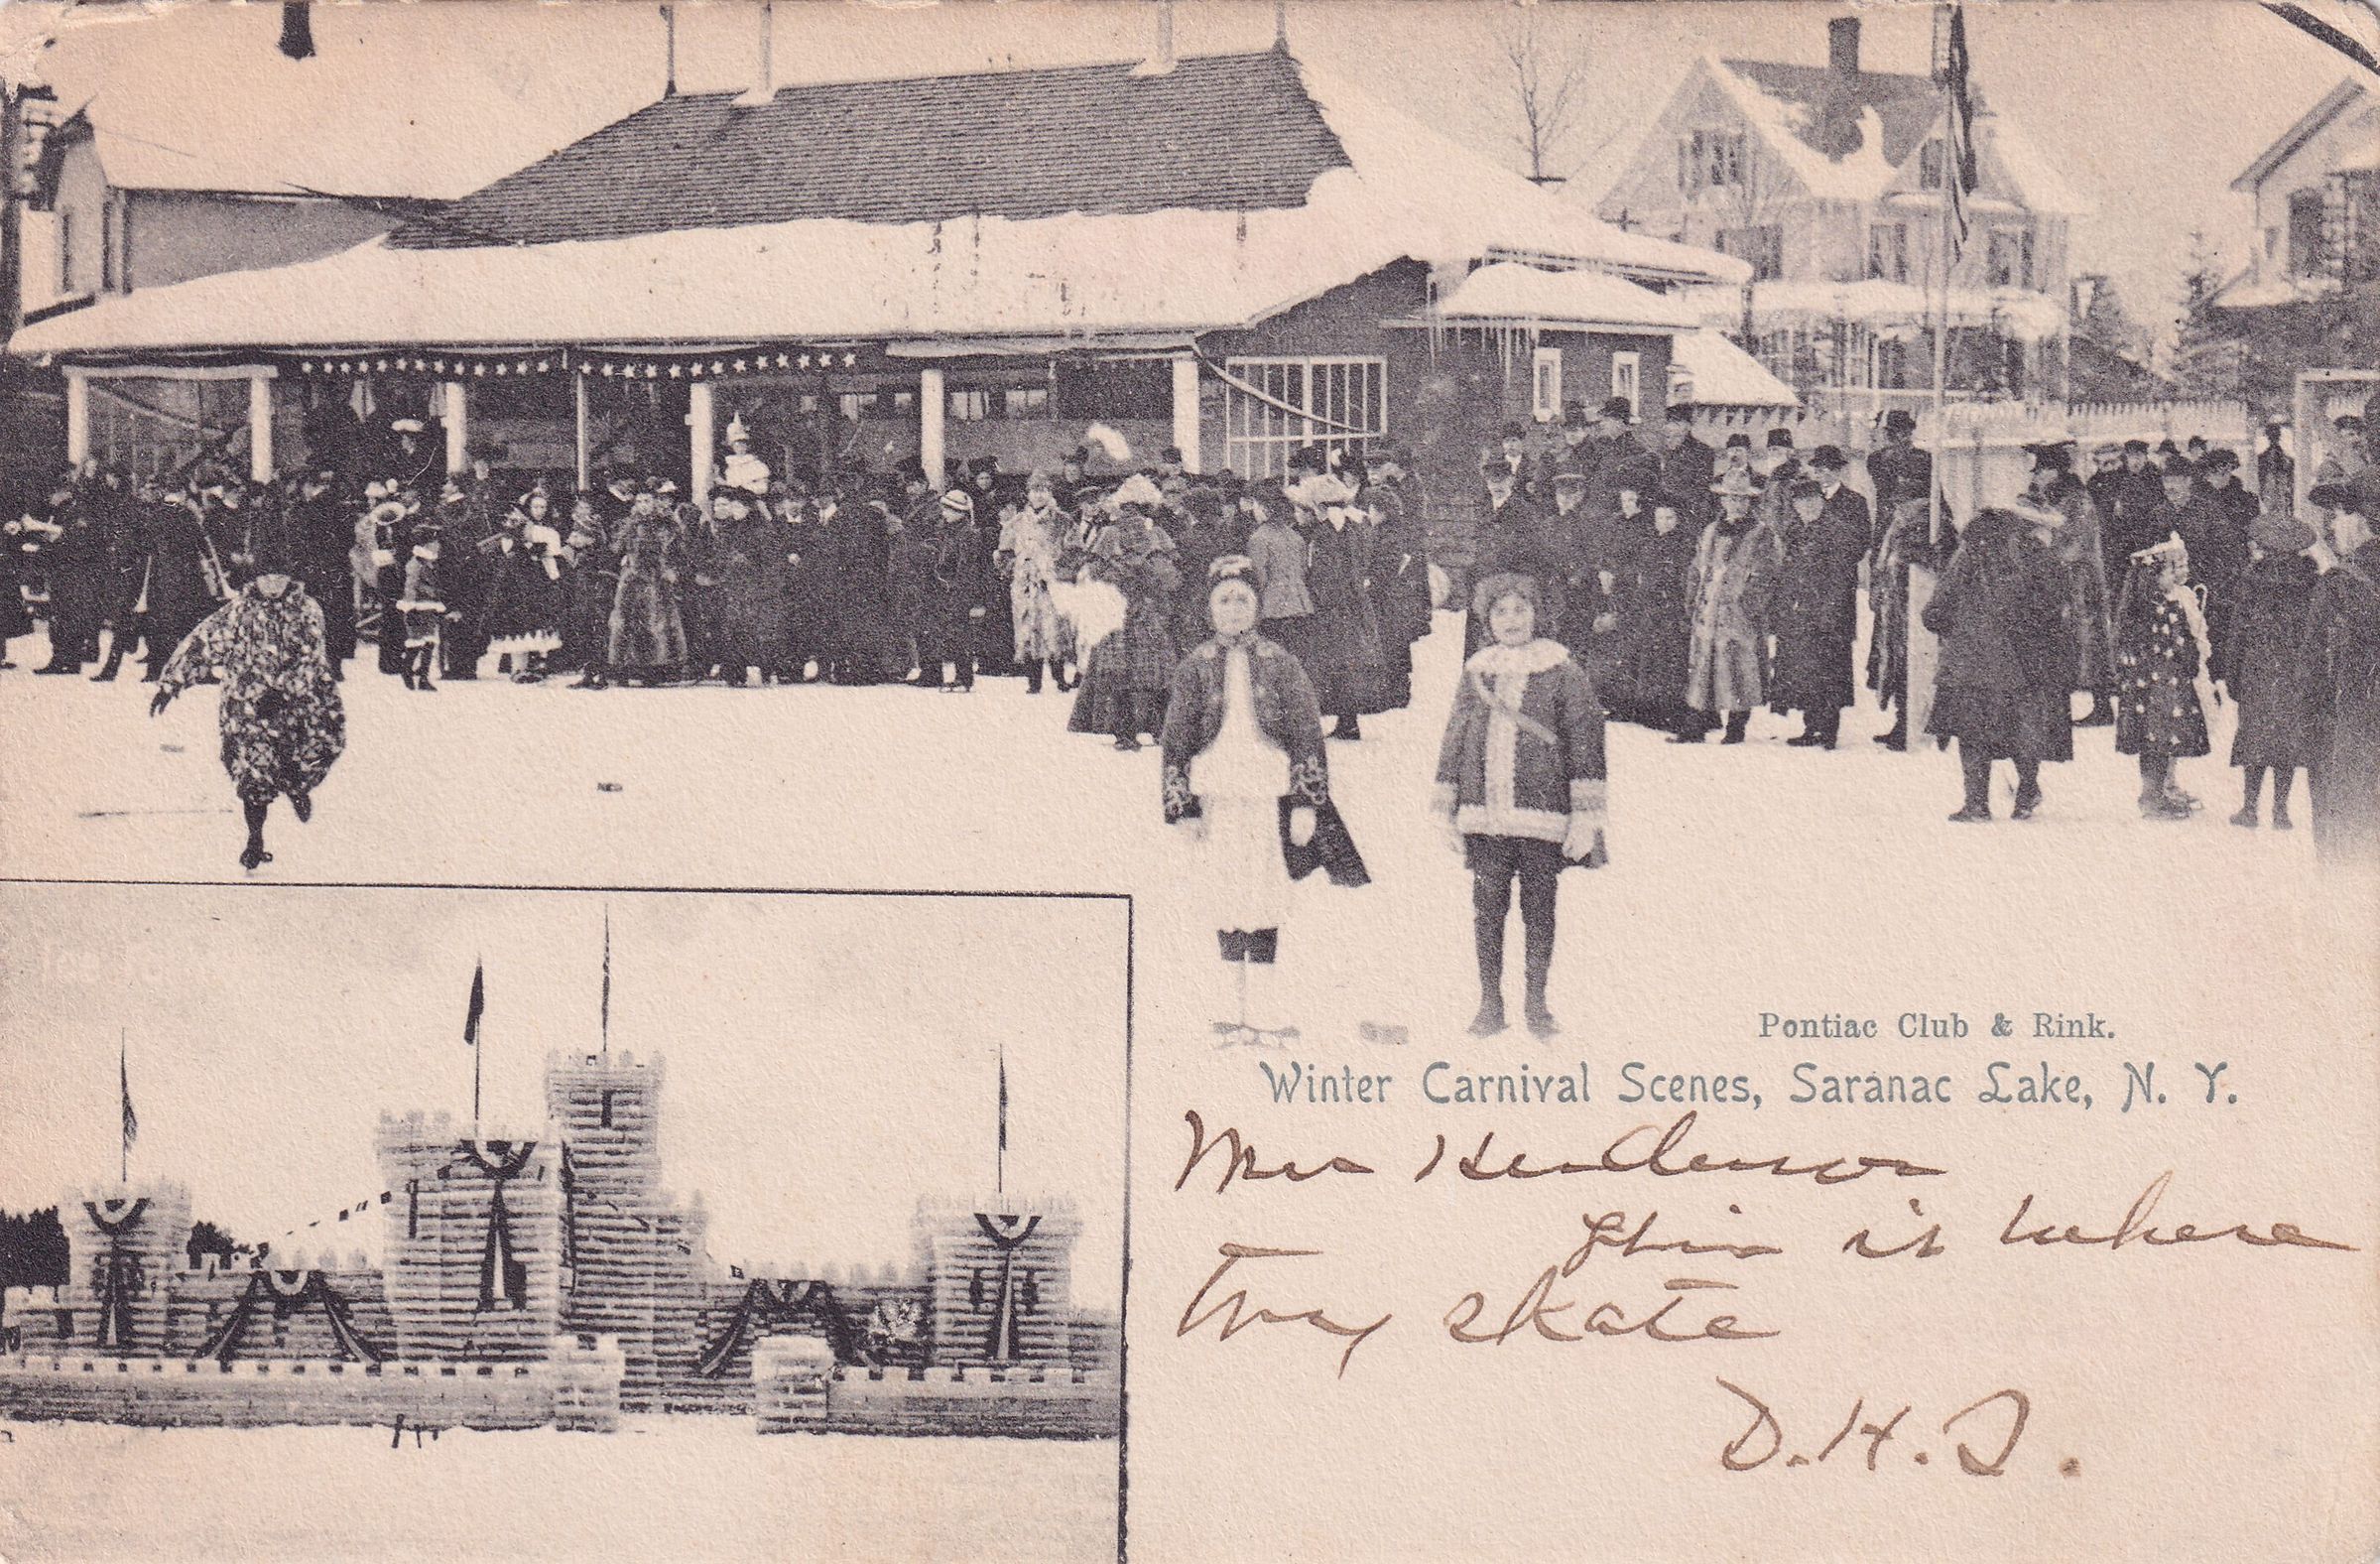 Pontiac Club & Rink.
Winter Carnival Scenes, Saranac Lake, N. Y.
Mrs Henderson
This is where
they skate
D.H.